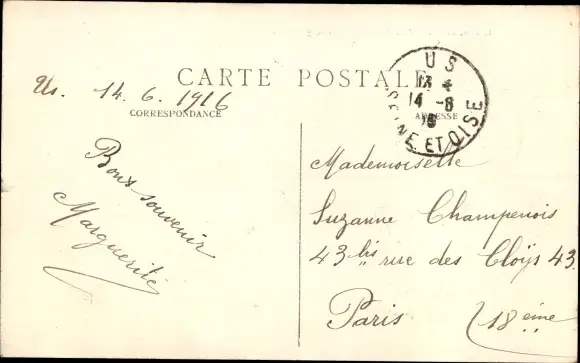 CARTE POSTALE
Us. 14.6.1916
CORRESPONDANCE
ADRESSE
US
14 -6
SEINE ET OISE
Bons souvenir
Marguerite
Mademoiselle
Suzanne Champenois
43 bis rue des Cloÿs 43.
Paris (18 eme